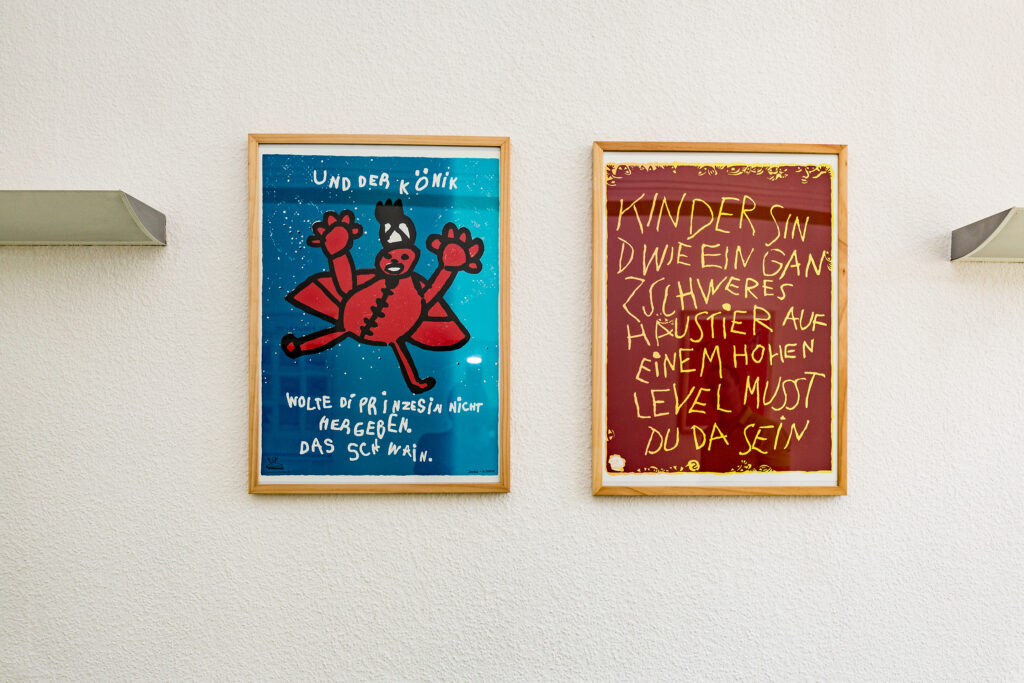 UND DER KÖNIK
WOLTE DI PRINZESIN NICHT
HERGEBEN.
DAS SCHWAIN.
KINDER SIN
D WIE EIN GAN
Z SCHWERES
HAUSTIER AUF
EINEM HOHEN
LEVEL MUSST
DU DA SEIN